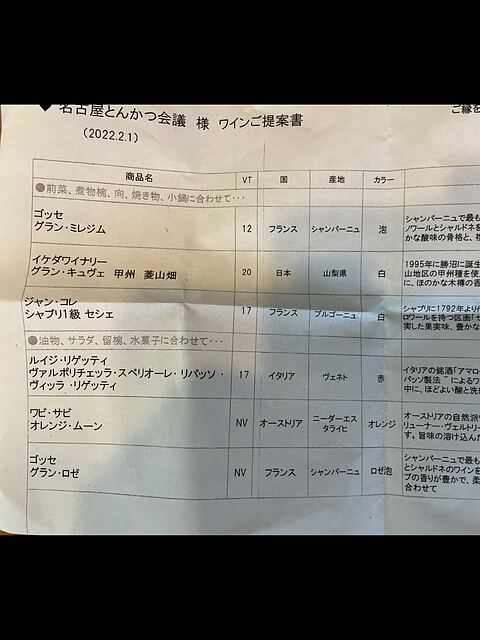 ◆ 名古屋とんかつ会議 様 ワインご提案書
ご縁を
(2022.2.1)
商品名 VT 国 産地 カラー
●前菜、煮物椀、向、焼き物、小鍋に合わせて・・・
ゴッセ
グラン・ミレジム 12 フランス シャンパーニュ 泡
シャンパーニュで最も
ノワールとシャルドネを
かな酸味の骨格と、複
イケダワイナリー
グラン・キュヴェ 甲州 菱山畑 20 日本 山梨県 白
1995年に勝沼に誕生
山地区の甲州種を使
に、ほのかな木樽の香
ジャン・コレ
シャブリ1級 セシェ 17 フランス ブルゴーニュ 白
シャブリに1792年より
ロワールを持つ区画「セ
実した果実味、豊かな
●油物、サラダ、留椀、水菓子に合わせて・・・
ルイジ・リゲッティ
ヴァルポリチェッラ・スペリオーレ・リパッソ・
ヴィッラ・リゲッティ 17 イタリア ヴェネト 赤
イタリアの銘酒「アマロー
パッソ製法"によるワ
中に、ほどよい酸と洗
ワビ・サビ
オレンジ・ムーン NV オーストリア ニーダーエス
タライヒ オレンジ
オーストリアの自然派
リューナー・ヴェルトリー
す。旨味の溶け込んだ
ゴッセ
グラン・ロゼ NV フランス シャンパーニュ ロゼ泡
シャンパーニュで最も
とシャルドネのワインを
プの香りが豊かで、柔
合わせて